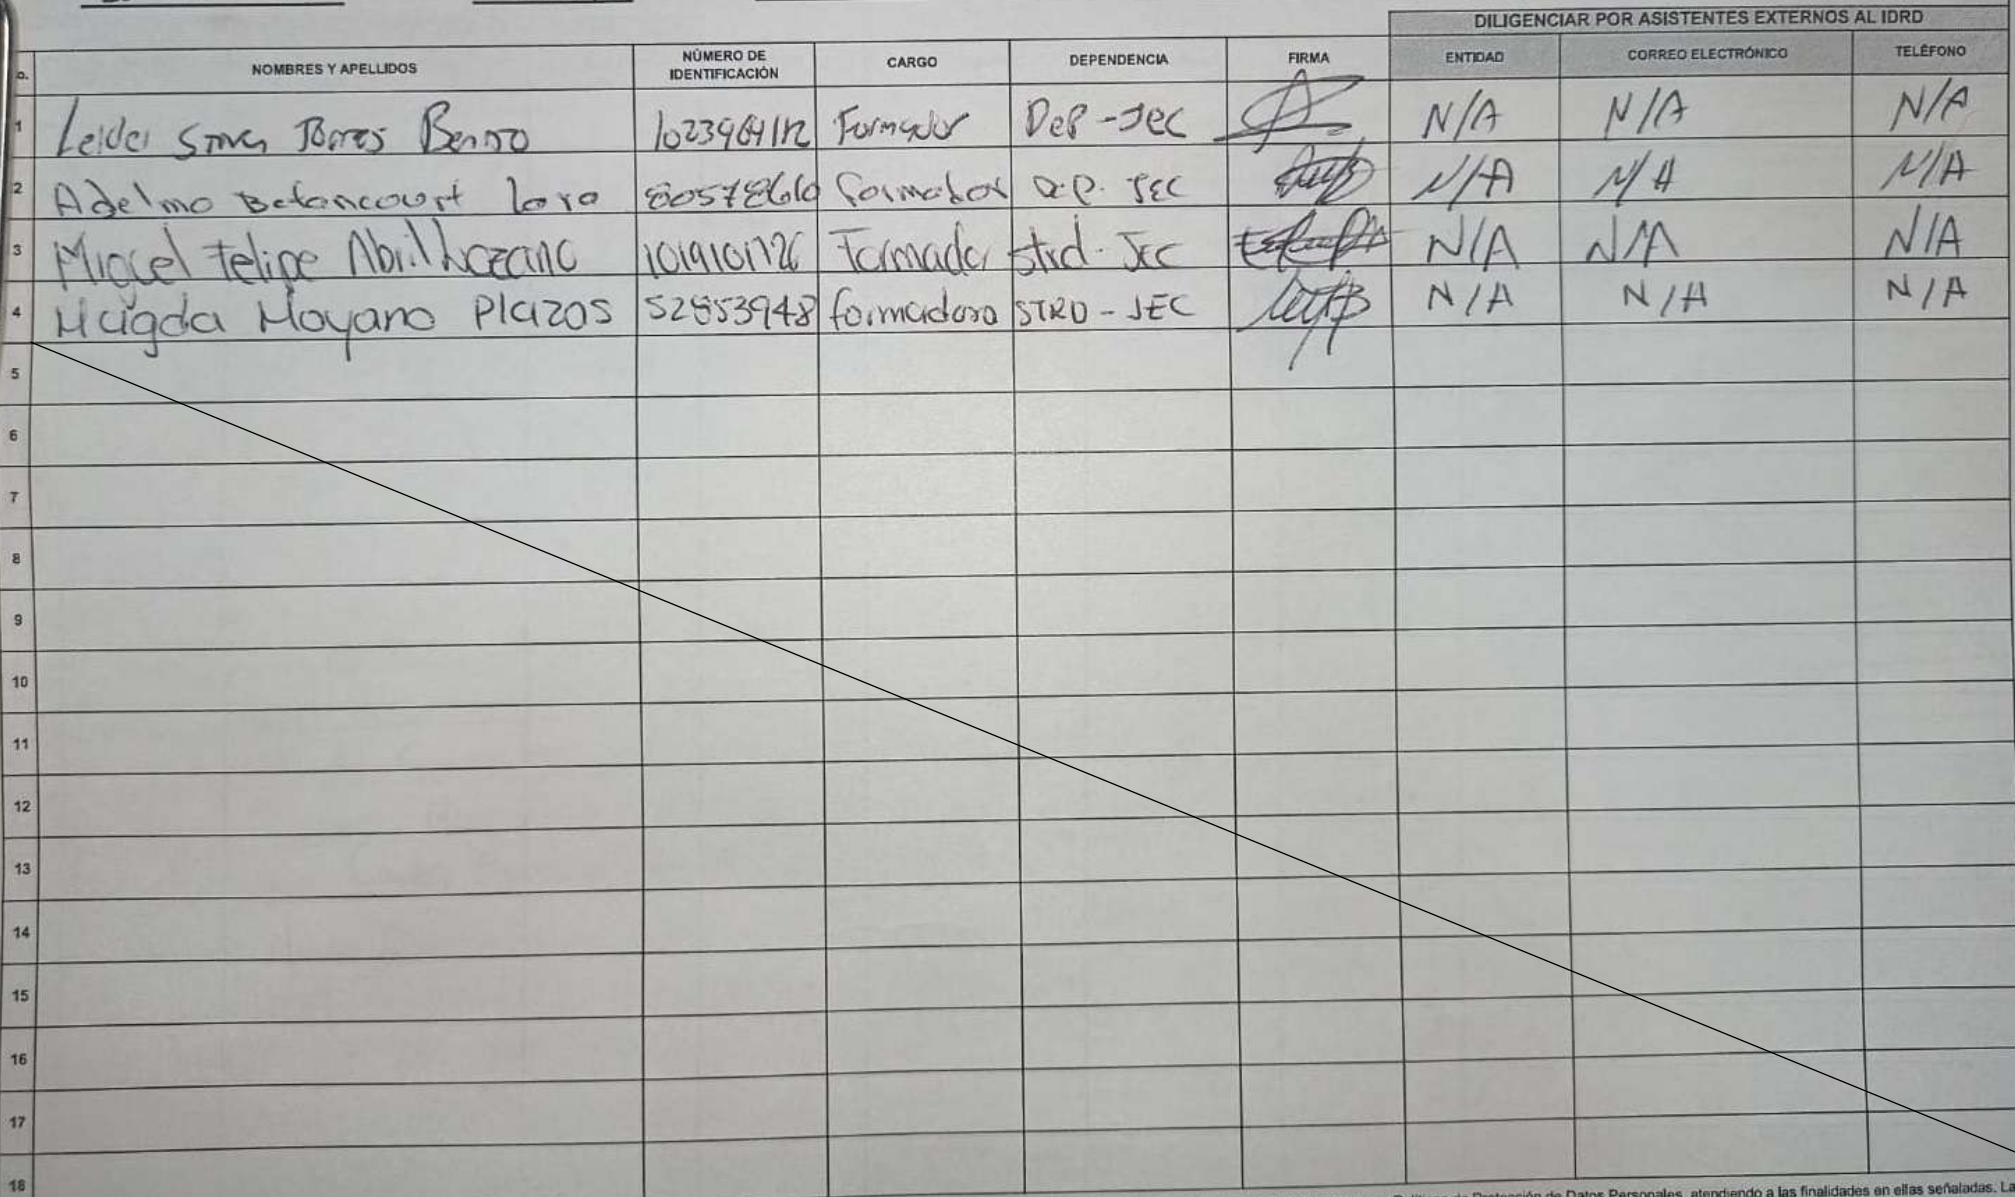 DILIGENCIAR POR ASISTENTES EXTERNOS AL IDRD
o. NOMBRES Y APELLIDOS NÚMERO DE IDENTIFICACIÓN CARGO DEPENDENCIA FIRMA ENTIDAD CORREO ELECTRÓNICO TELÉFONO
1 Torres Formador Dep - JEC N/A N/A N/A
2 Adelmo Betancourt formador JEC N/A N/A N/A
3 Miguel Felipe Abril Lozano Formador strd. JEC N/A N/A N/A
4 Magda Moyano Plazas 52853948 formadora STRD - JEC N/A N/A N/A
5
6
7
8
9
10
11
12
13
14
15
16
17
18
Protección de Datos Personales, atendiendo a las finalidades en ellas señaladas. La